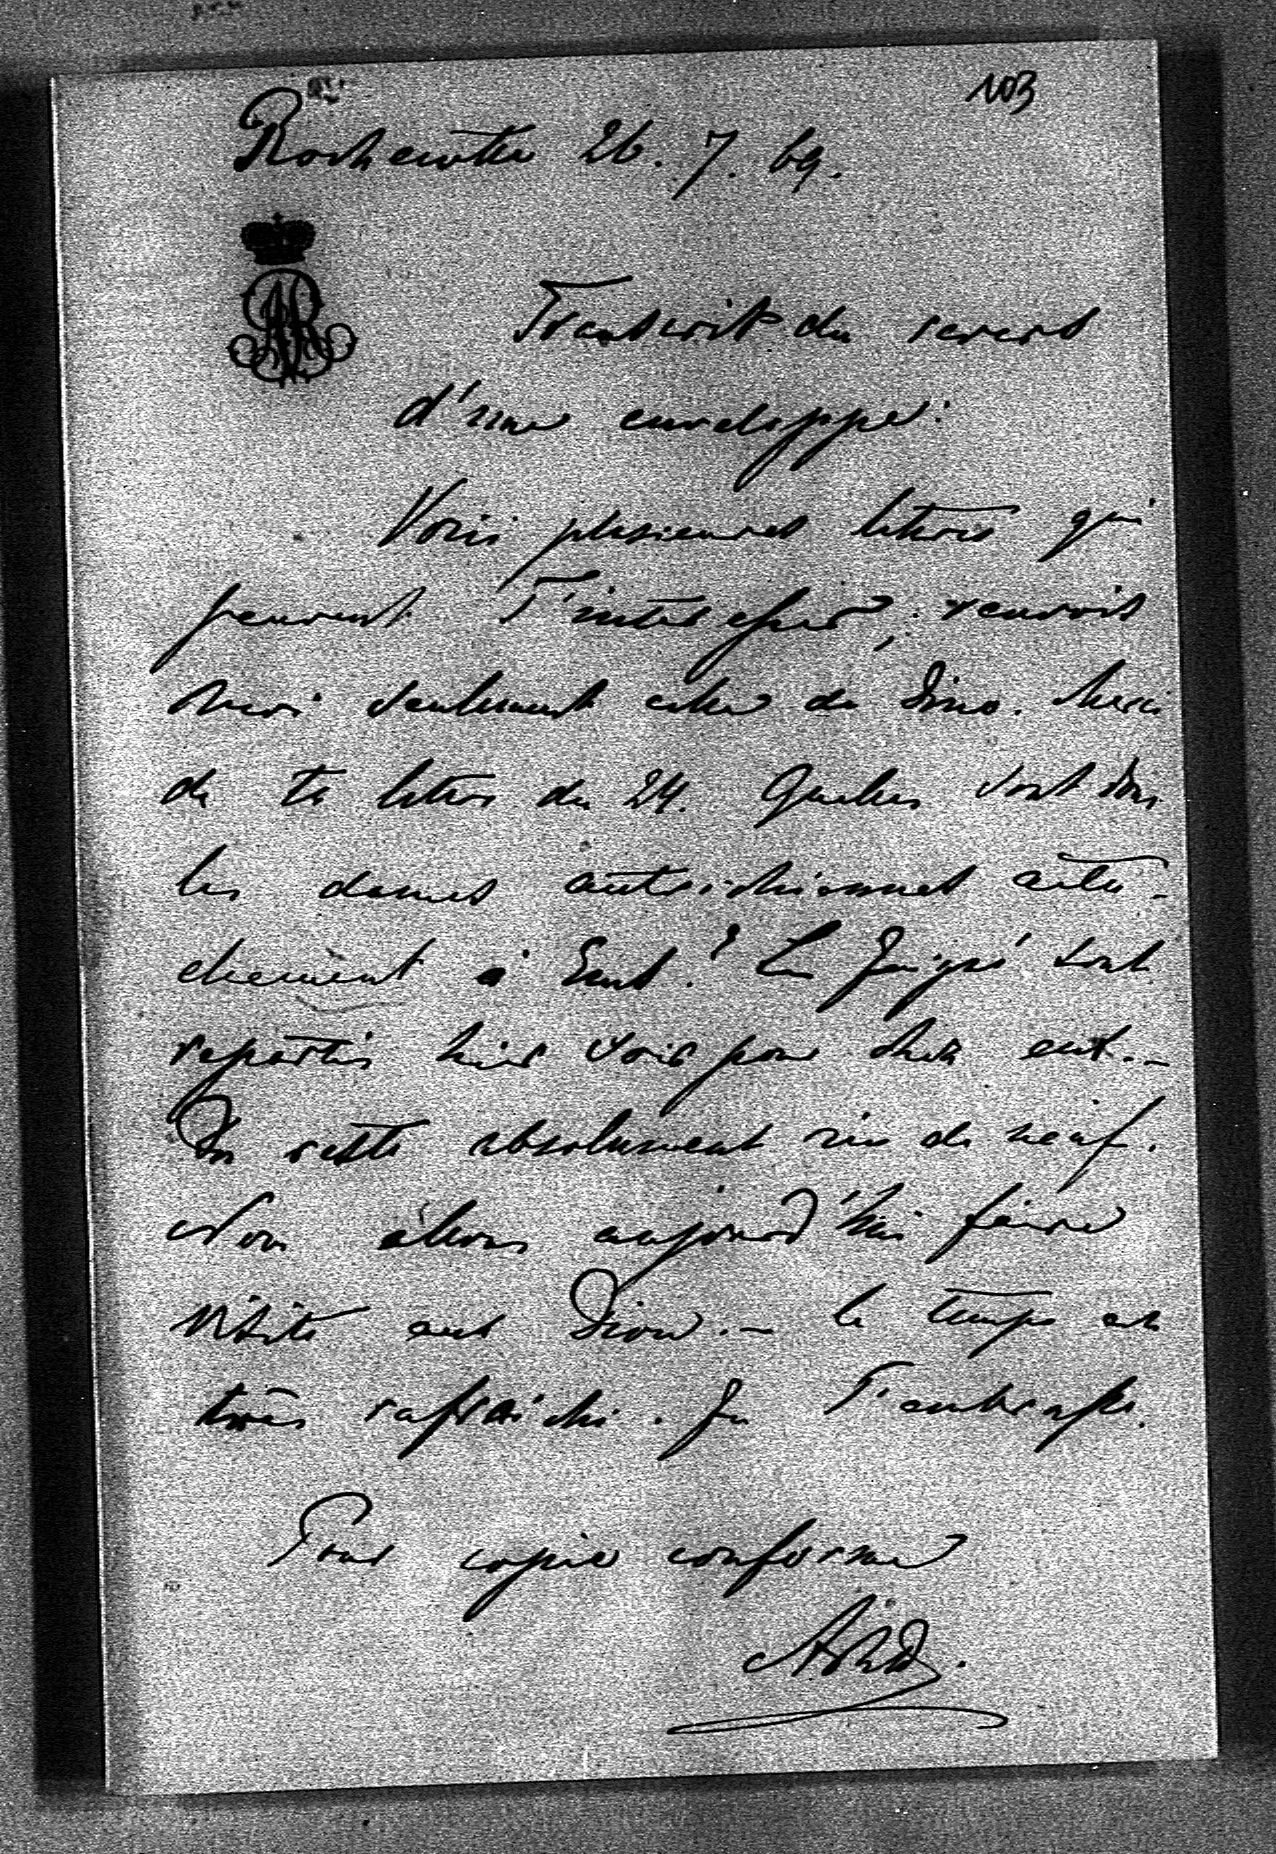 103
Rochecotte 26. 7. 69.
Transcrit du revers
d'une enveloppe:
Voici plusieures lettres qui
peuvent t'intéresser; renvois
moi seulement celle de Dino. Merci
de ta lettre du 24. Quelles sont donc
les dames autrichiennes
à Ems? Les sont
repartis hier soir pour chez eux.-
Du reste absolument rien de neuf.
Nous allons aujourd'hui faire
visite aux .- le temps est
très rafraichi. Je t'embrasse.
Pour copie conforme